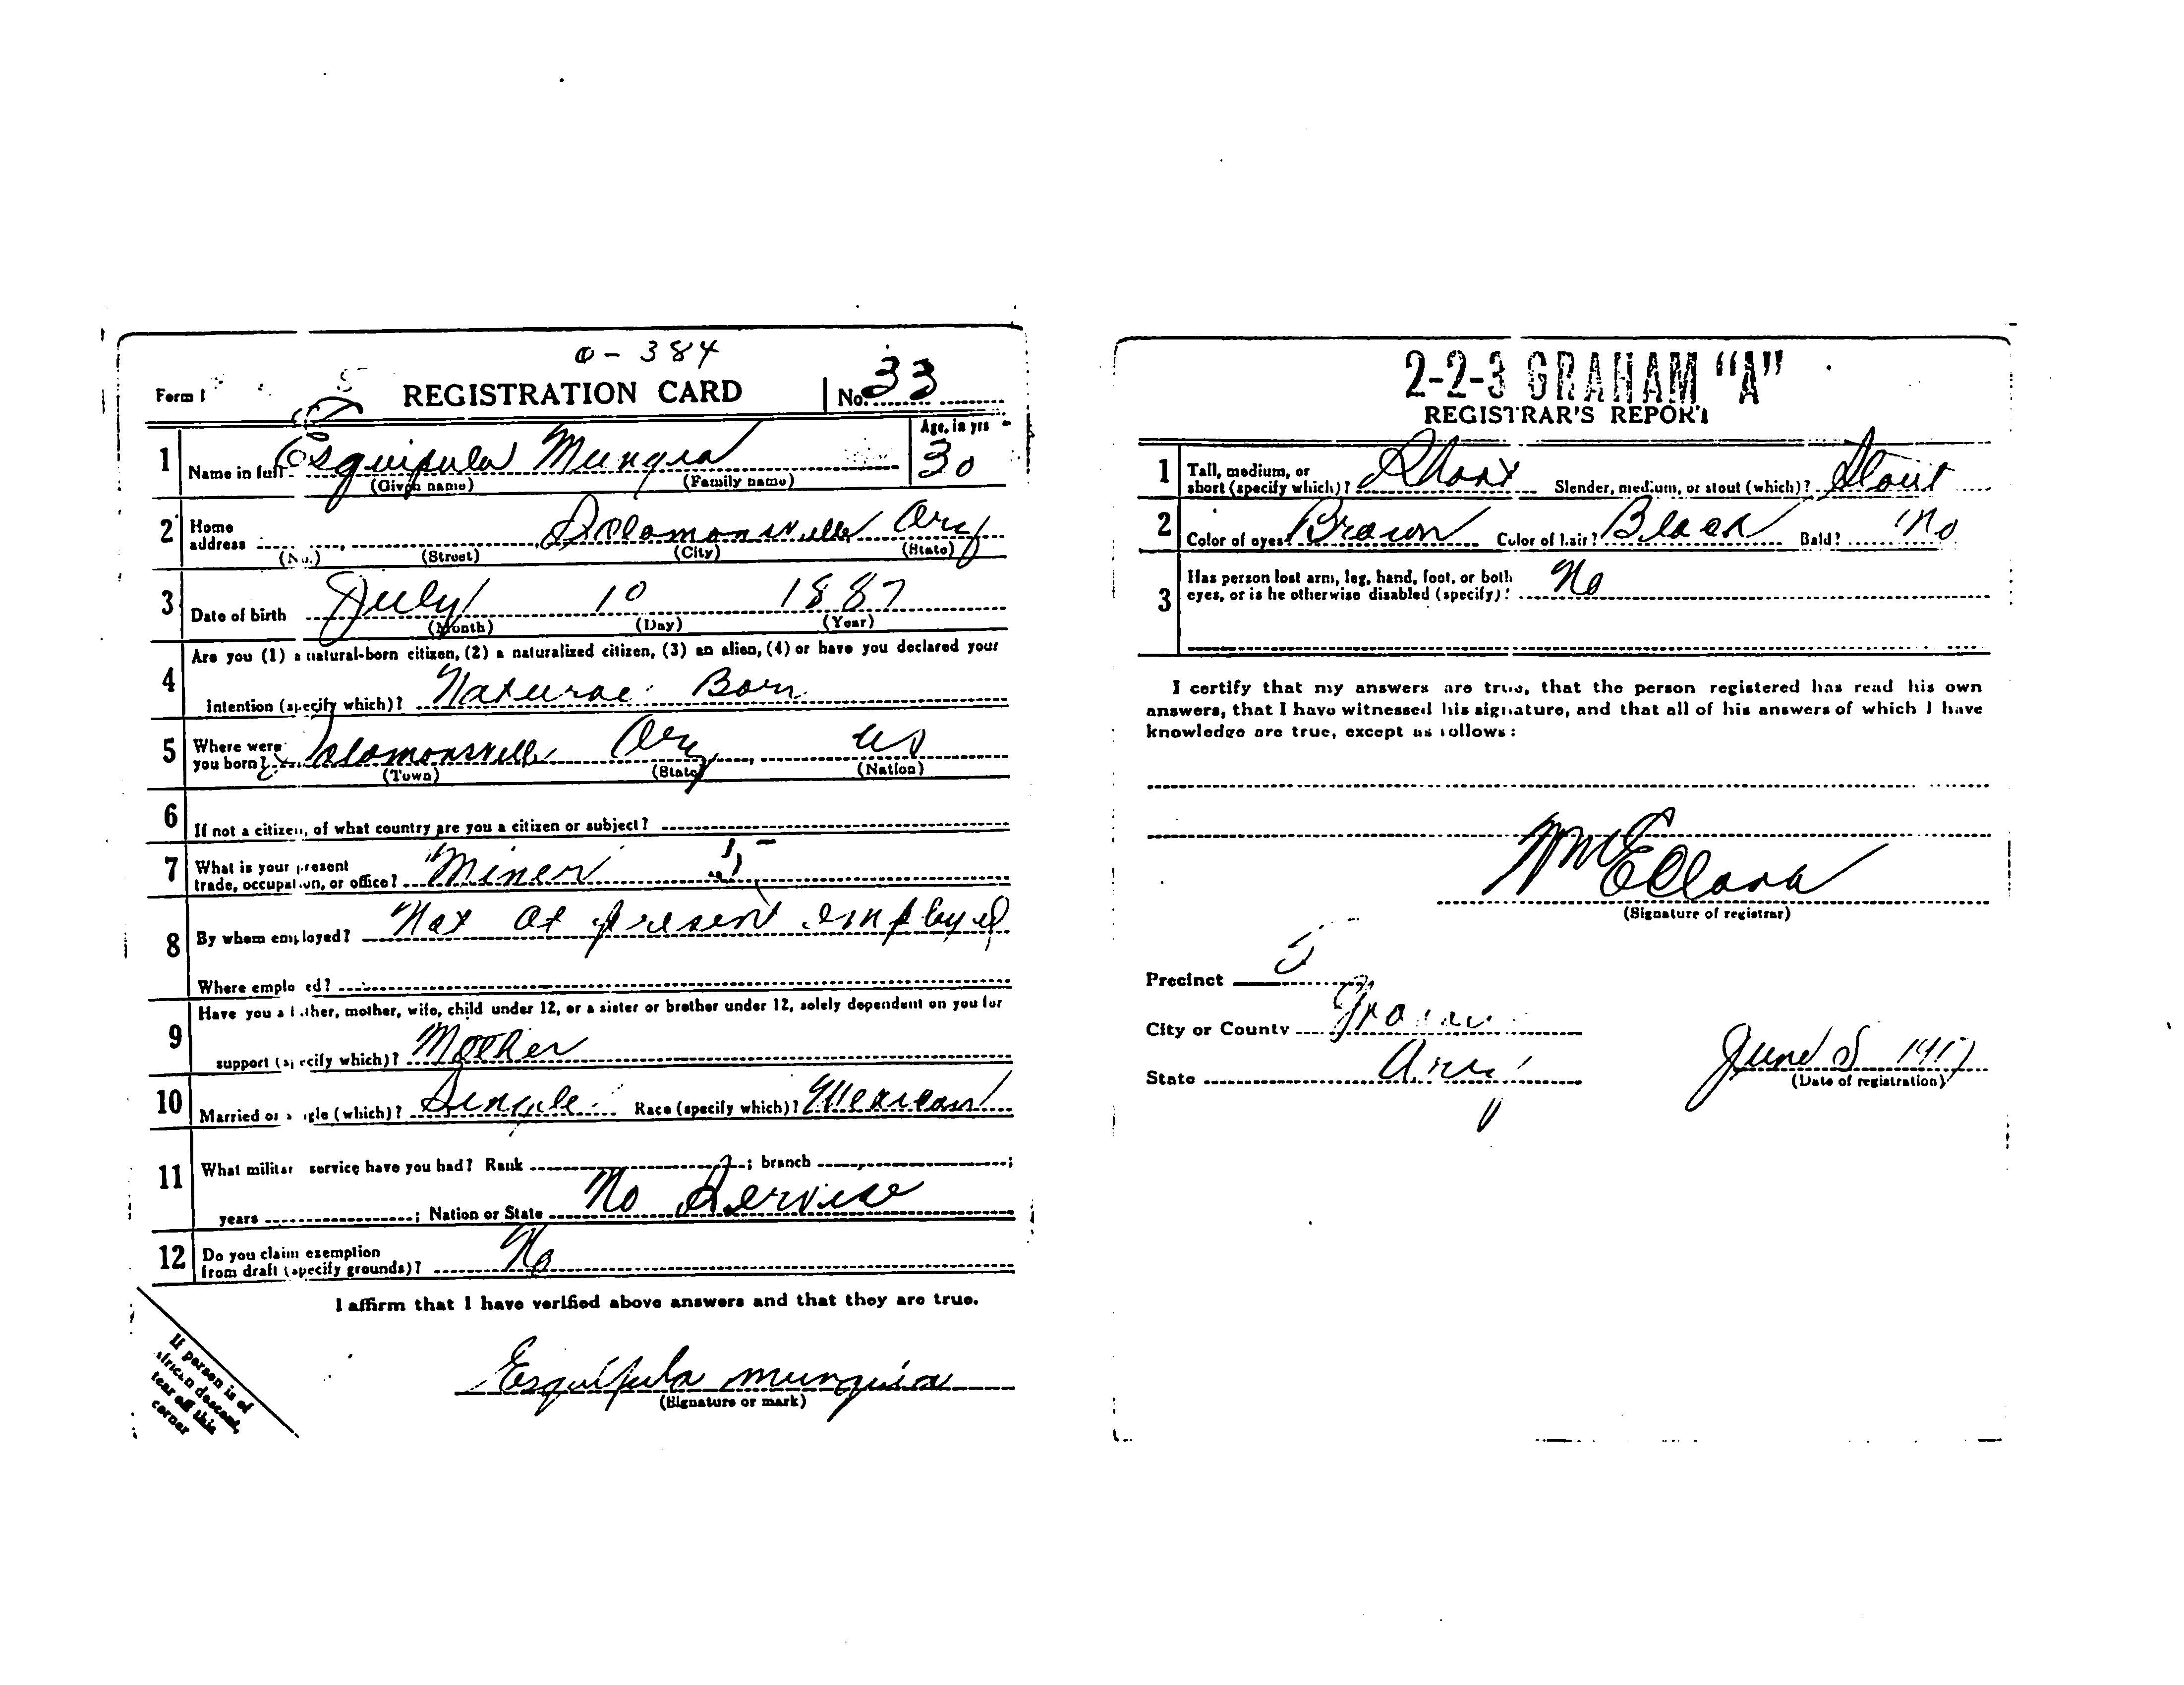 0-384
Form 1 REGISTRATION CARD No. 33
Age, in yrs
1 Name in full Esquipula Munguia 30
(Given name) (Family name)
2 Home address Solomonsville Ariz
(No.) (Street) (City) (State)
3 Date of birth July 10 1887
(Month) (Day) (Year)
4 Are you (1) a natural-born citizen, (2) a naturalized citizen, (3) an alien, (4) or have you declared your
intention (specify which)? Natural Born
5 Where were you born? Solomonsville Ariz, US
(Town) (State) (Nation)
6 If not a citizen, of what country are you a citizen or subject?
7 What is your present trade, occupation, or office? Miner
8 By whom employed? Not at present employed
Where employed?
9 Have you a father, mother, wife, child under 12, or a sister or brother under 12, solely dependent on you for
support (specify which)? Mother
10 Married or single (which)? Single Race (specify which)? Mexican
11 What military service have you had? Rank ; branch ;
years ; Nation or State No Service
12 Do you claim exemption from draft (specify grounds)? No
I affirm that I have verified above answers and that they are true.
Esquipula munguia
(Signature or mark)
If person is of
African descent,
tear off this
corner
2-2-3 GRAHAM "A"
REGISTRAR'S REPORT
1 Tall, medium, or short (specify which)? Short Slender, medium, or stout (which)? Stout
2 Color of eyes? Brown Color of hair? Black Bald? No
3 Has person lost arm, leg, hand, foot, or both eyes, or is he otherwise disabled (specify)? No
I certify that my answers are true, that the person registered has read his own
answers, that I have witnessed his signature, and that all of his answers of which I have
knowledge are true, except as follows:
(Signature of registrar)
Precinct 5
City or County Graham
State Ariz
June 5 1917
(Date of registration)